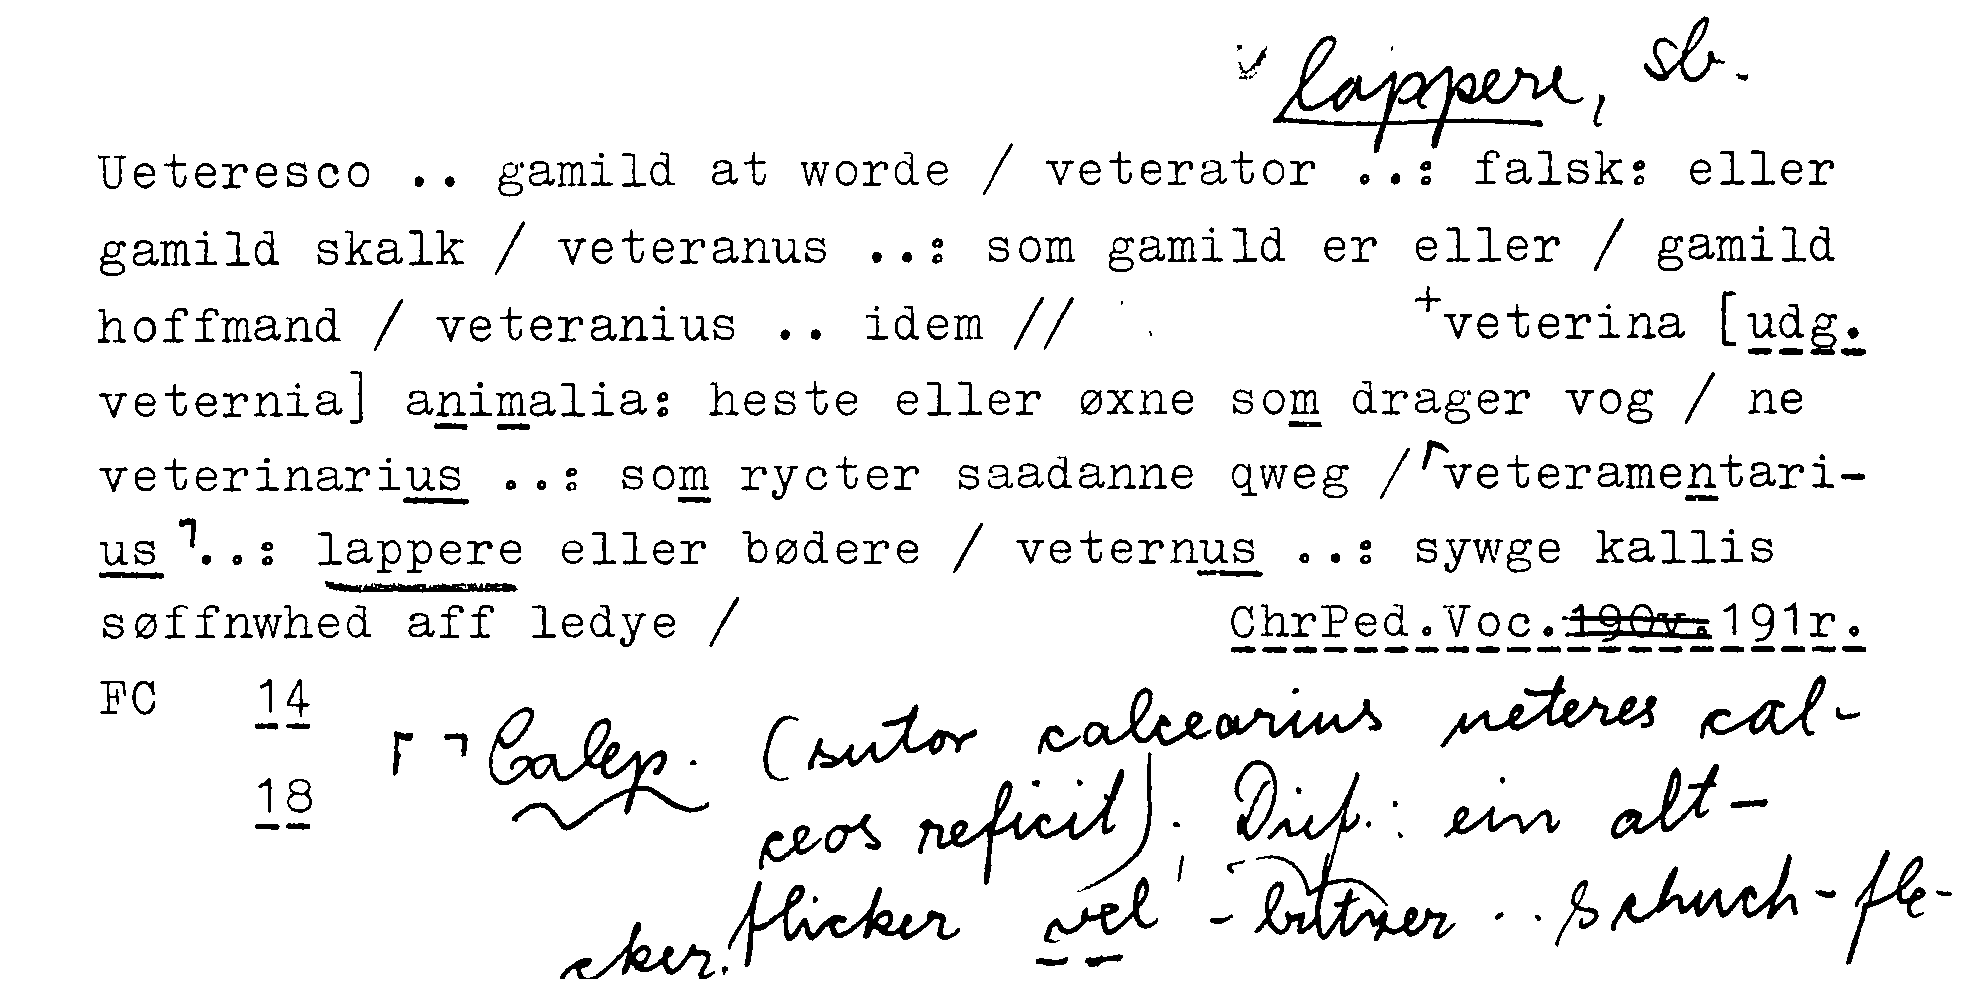 lappere, sb.
Ueteresco .. gamild at worde / veterator ..: falsk: eller
gamild skalk / veteranus ..: som gamild er eller / gamild
hoffmand / veteranius .. idem // +veterina [udg.
veternia] animalia: heste eller øxne som drager vog / ne
veterinarius ..: som rycter saadanne qweg /⌜veteramentari-
us⌝..: lappere eller bødere / veternus ..: sywge kallis
søffnwhed aff ledye / ChrPed.Voc.190v.191r.
FC 14
⌜ ⌝ Calep. (sutor calcearius ueteres cal-
18
ceos reficit). Dief.: ein alt-
flicker vel -butzer .. schuch-fle-
cker.